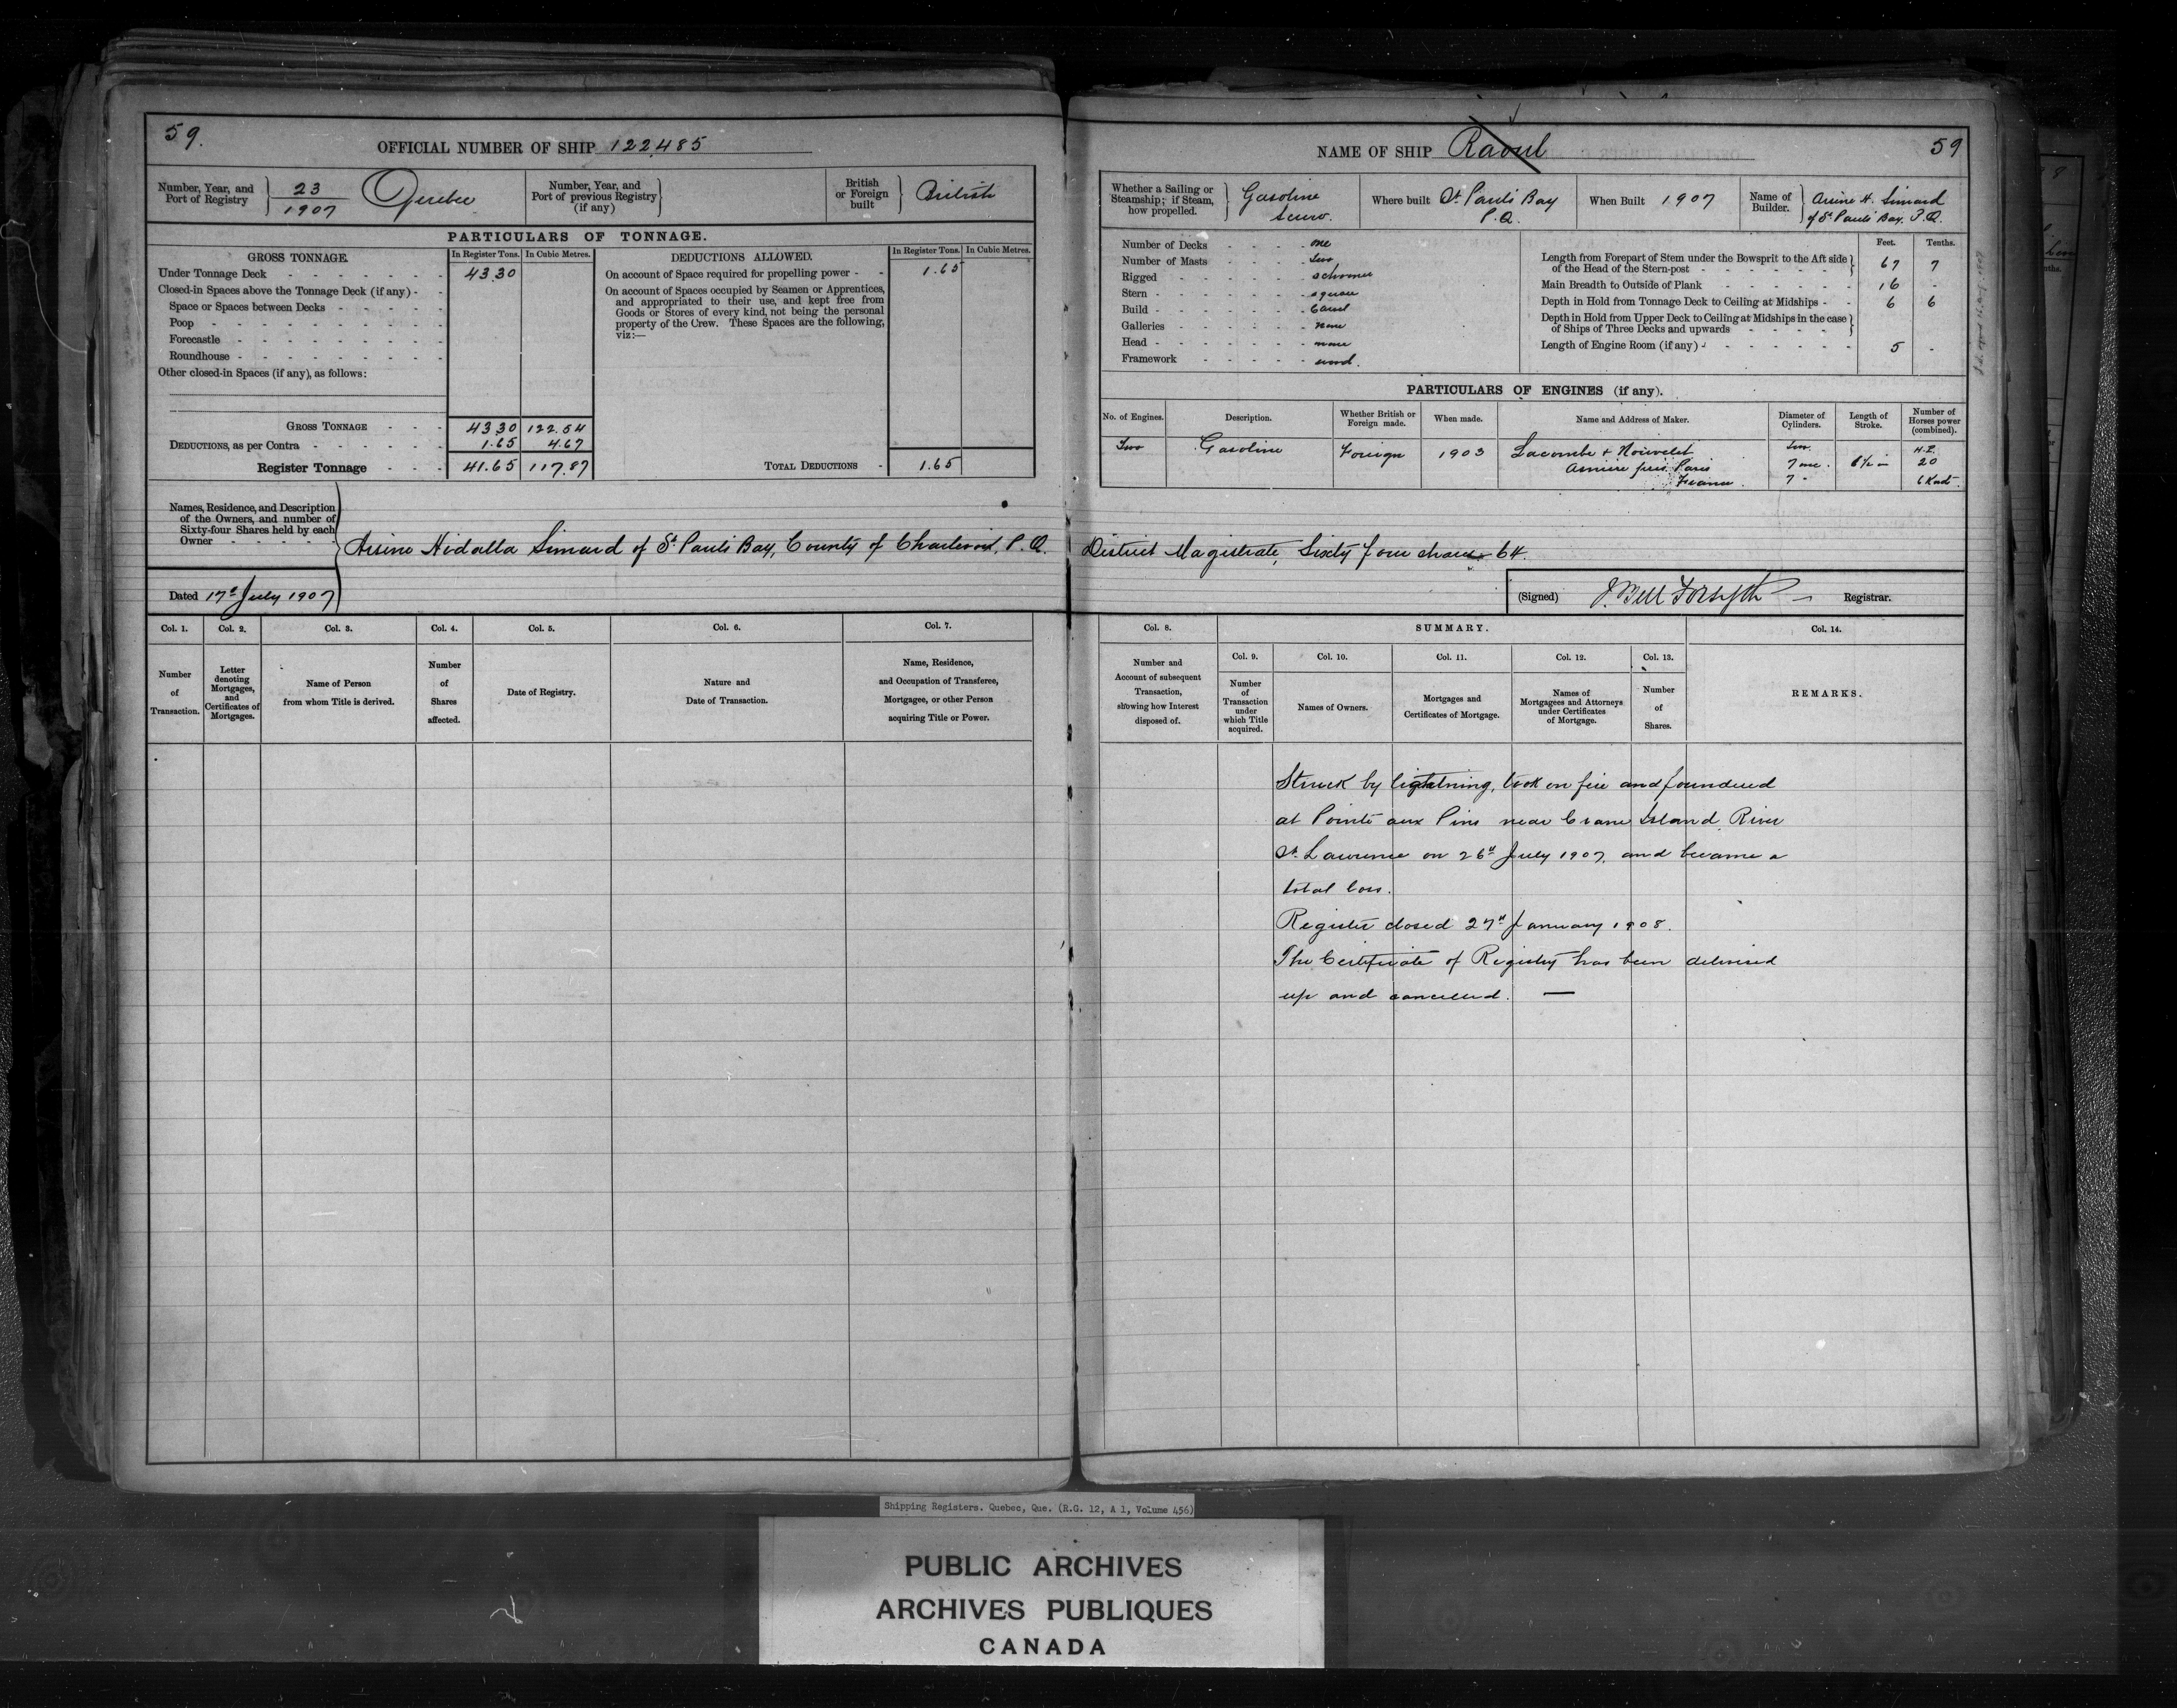 59.
OFFICIAL NUMBER OF SHIP 122,485
Number, Year, and Port of Registry
23
1907
Quebec
Number, Year, and Port of previous Registry (if any)
British or Foreign built
British
PARTICULARS OF TONNAGE.
GROSS TONNAGE.
In Register Tons.
In Cubic Metres.
Under Tonnage Deck 43.30
Closed-in Spaces above the Tonnage Deck (if any)
Space or Spaces between Decks
Poop
Forecastle
Roundhouse
Other closed-in Spaces (if any), as follows:
GROSS TONNAGE 43.30 122.54
DEDUCTIONS, as per Contra 1.65 4.67
Register Tonnage 41.65 117.87
DEDUCTIONS ALLOWED.
In Register Tons.
In Cubic Metres.
On account of Space required for propelling power 1.65
On account of Spaces occupied by Seamen or Apprentices,
and appropriated to their use, and kept free from
Goods or Stores of every kind, not being the personal
property of the Crew. These Spaces are the following,
viz:—
TOTAL DEDUCTIONS 1.65
Names, Residence, and Description
of the Owners, and number of
Sixty-four Shares held by each
Owner
Arsine Hidalla Simard of St. Pauls Bay, County of Charlevoix, P.Q.
Dated 17th July 1907
Col. 1.
Number of Transaction.
Col. 2.
Letter denoting Mortgages, and Certificates of Mortgages.
Col. 3.
Name of Person from whom Title is derived.
Col. 4.
Number of Shares affected.
Col. 5.
Date of Registry.
Col. 6.
Nature and Date of Transaction.
Col. 7.
Name, Residence, and Occupation of Transferee, Mortgagee, or other Person acquiring Title or Power.
NAME OF SHIP Raoul
59
Whether a Sailing or Steamship; if Steam, how propelled.
Gasoline
Screw.
Where built St. Pauls Bay
P.Q.
When Built 1907
Name of Builder.
Arsine H. Simard
of St. Pauls Bay, P.Q.
Number of Decks one
Number of Masts two
Rigged schooner
Stern square
Build Carvel
Galleries none
Head none
Framework wood.
Feet. Tenths.
Length from Forepart of Stem under the Bowsprit to the Aft side
of the Head of the Stern-post 67 7
Main Breadth to Outside of Plank 16 -
Depth in Hold from Tonnage Deck to Ceiling at Midships 6 6
Depth in Hold from Upper Deck to Ceiling at Midships in the case
of Ships of Three Decks and upwards
Length of Engine Room (if any) 5 -
PARTICULARS OF ENGINES (if any).
No. of Engines.
Description.
Whether British or Foreign made.
When made.
Name and Address of Maker.
Diameter of Cylinders.
Length of Stroke.
Number of Horses power (combined).
Two
Gasoline
Foreign
1903
Lacombe &
Paris
France.
20
District Magistrate, Sixty four shares 64.
(Signed) J. Bell Forsyth Registrar.
Col. 8.
Number and Account of subsequent Transaction, showing how Interest disposed of.
SUMMARY.
Col. 9.
Number of Transaction under which Title acquired.
Col. 10.
Names of Owners.
Col. 11.
Mortgages and Certificates of Mortgage.
Col. 12.
Names of Mortgagees and Attorneys under Certificates of Mortgage.
Col. 13.
Number of Shares.
Col. 14.
REMARKS.
Struck by lightning, took on fire and foundered
at Pointe aux Pins near Crane Island River
St. Lawrence on 26th July 1907, and became a
total loss.
Register closed 27th January 1908.
The Certificate of Registry has been delivered
up and cancelled.
Shipping Registers. Quebec, Que. (R.G. 12, A 1, Volume 456)
PUBLIC ARCHIVES
ARCHIVES PUBLIQUES
CANADA